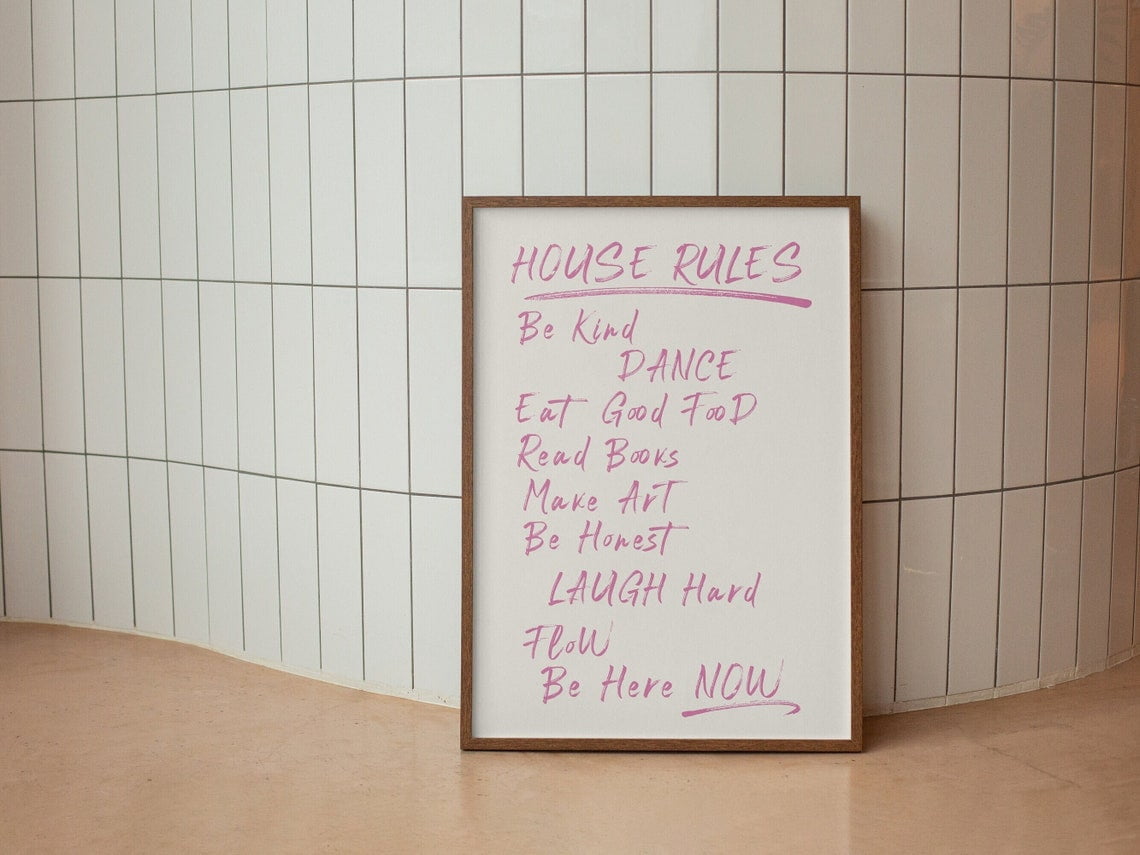 HOUSE RULES
Be Kind
DANCE
Eat Good FooD
Read Books
Make Art
Be Honest
LAUGH Hard
FloW
Be Here NOW